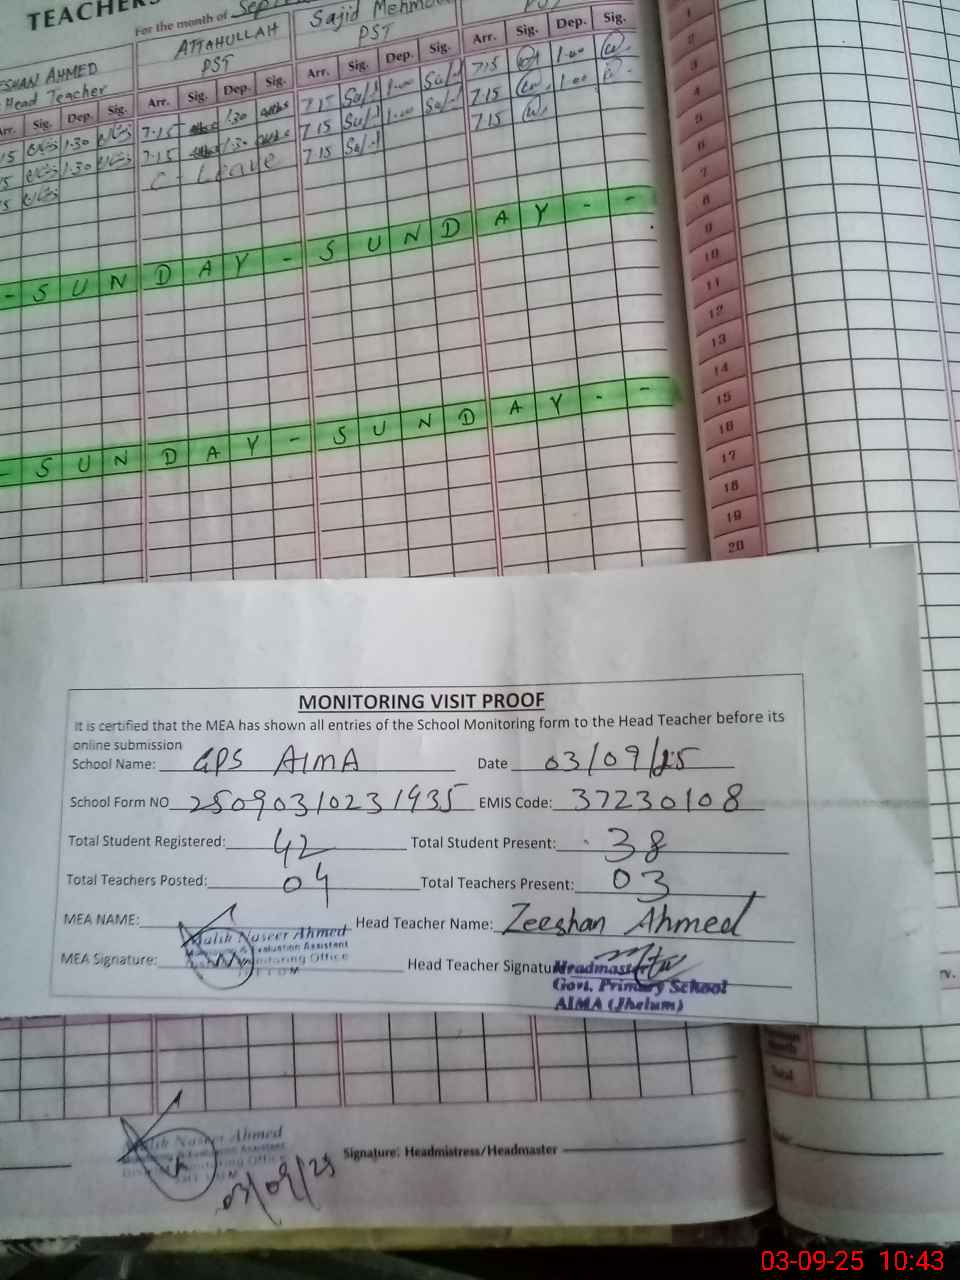 TEACHERS
For the month of Sept
ESHAN AHMED ATTAHULLAH Sajid Mehmood
Head Teacher PST PST PST
Arr. Sig. Dep. Sig. Arr. Sig. Dep. Sig. Arr. Sig. Dep. Sig. Arr. Sig. Dep. Sig.
15 1.30 7.15 1.30 7.15 1.00 7.15 1.00
5 1.30 7.15 1.30 7.15 1.00 7.15 1.00
5 C - Leave 7.15 7.15
- S U N D A Y - S U N D A Y - -
- S U N D A Y - S U N D A Y - -
1
2
3
4
5
6
7
8
9
10
11
12
13
14
15
16
17
18
19
20
MONITORING VISIT PROOF
It is certified that the MEA has shown all entries of the School Monitoring form to the Head Teacher before its
online submission
School Name: GPS AIMA Date 03/09/25
School Form NO 25090310231935 EMIS Code: 37230108
Total Student Registered: 42 Total Student Present: 38
Total Teachers Posted: 04 Total Teachers Present: 03
MEA NAME: Malik Naseer Ahmed Head Teacher Name: Zeeshan Ahmed
Evaluation Assistant
MEA Signature: Monitoring Office Head Teacher Signature Headmaster
Govt. Primary School
AIMA (Jhelum)
Total
Malik Naseer Ahmed
Evaluation Assistant
Monitoring Office
Signature: Headmistress/Headmaster
03/09/25
03-09-25 10:43